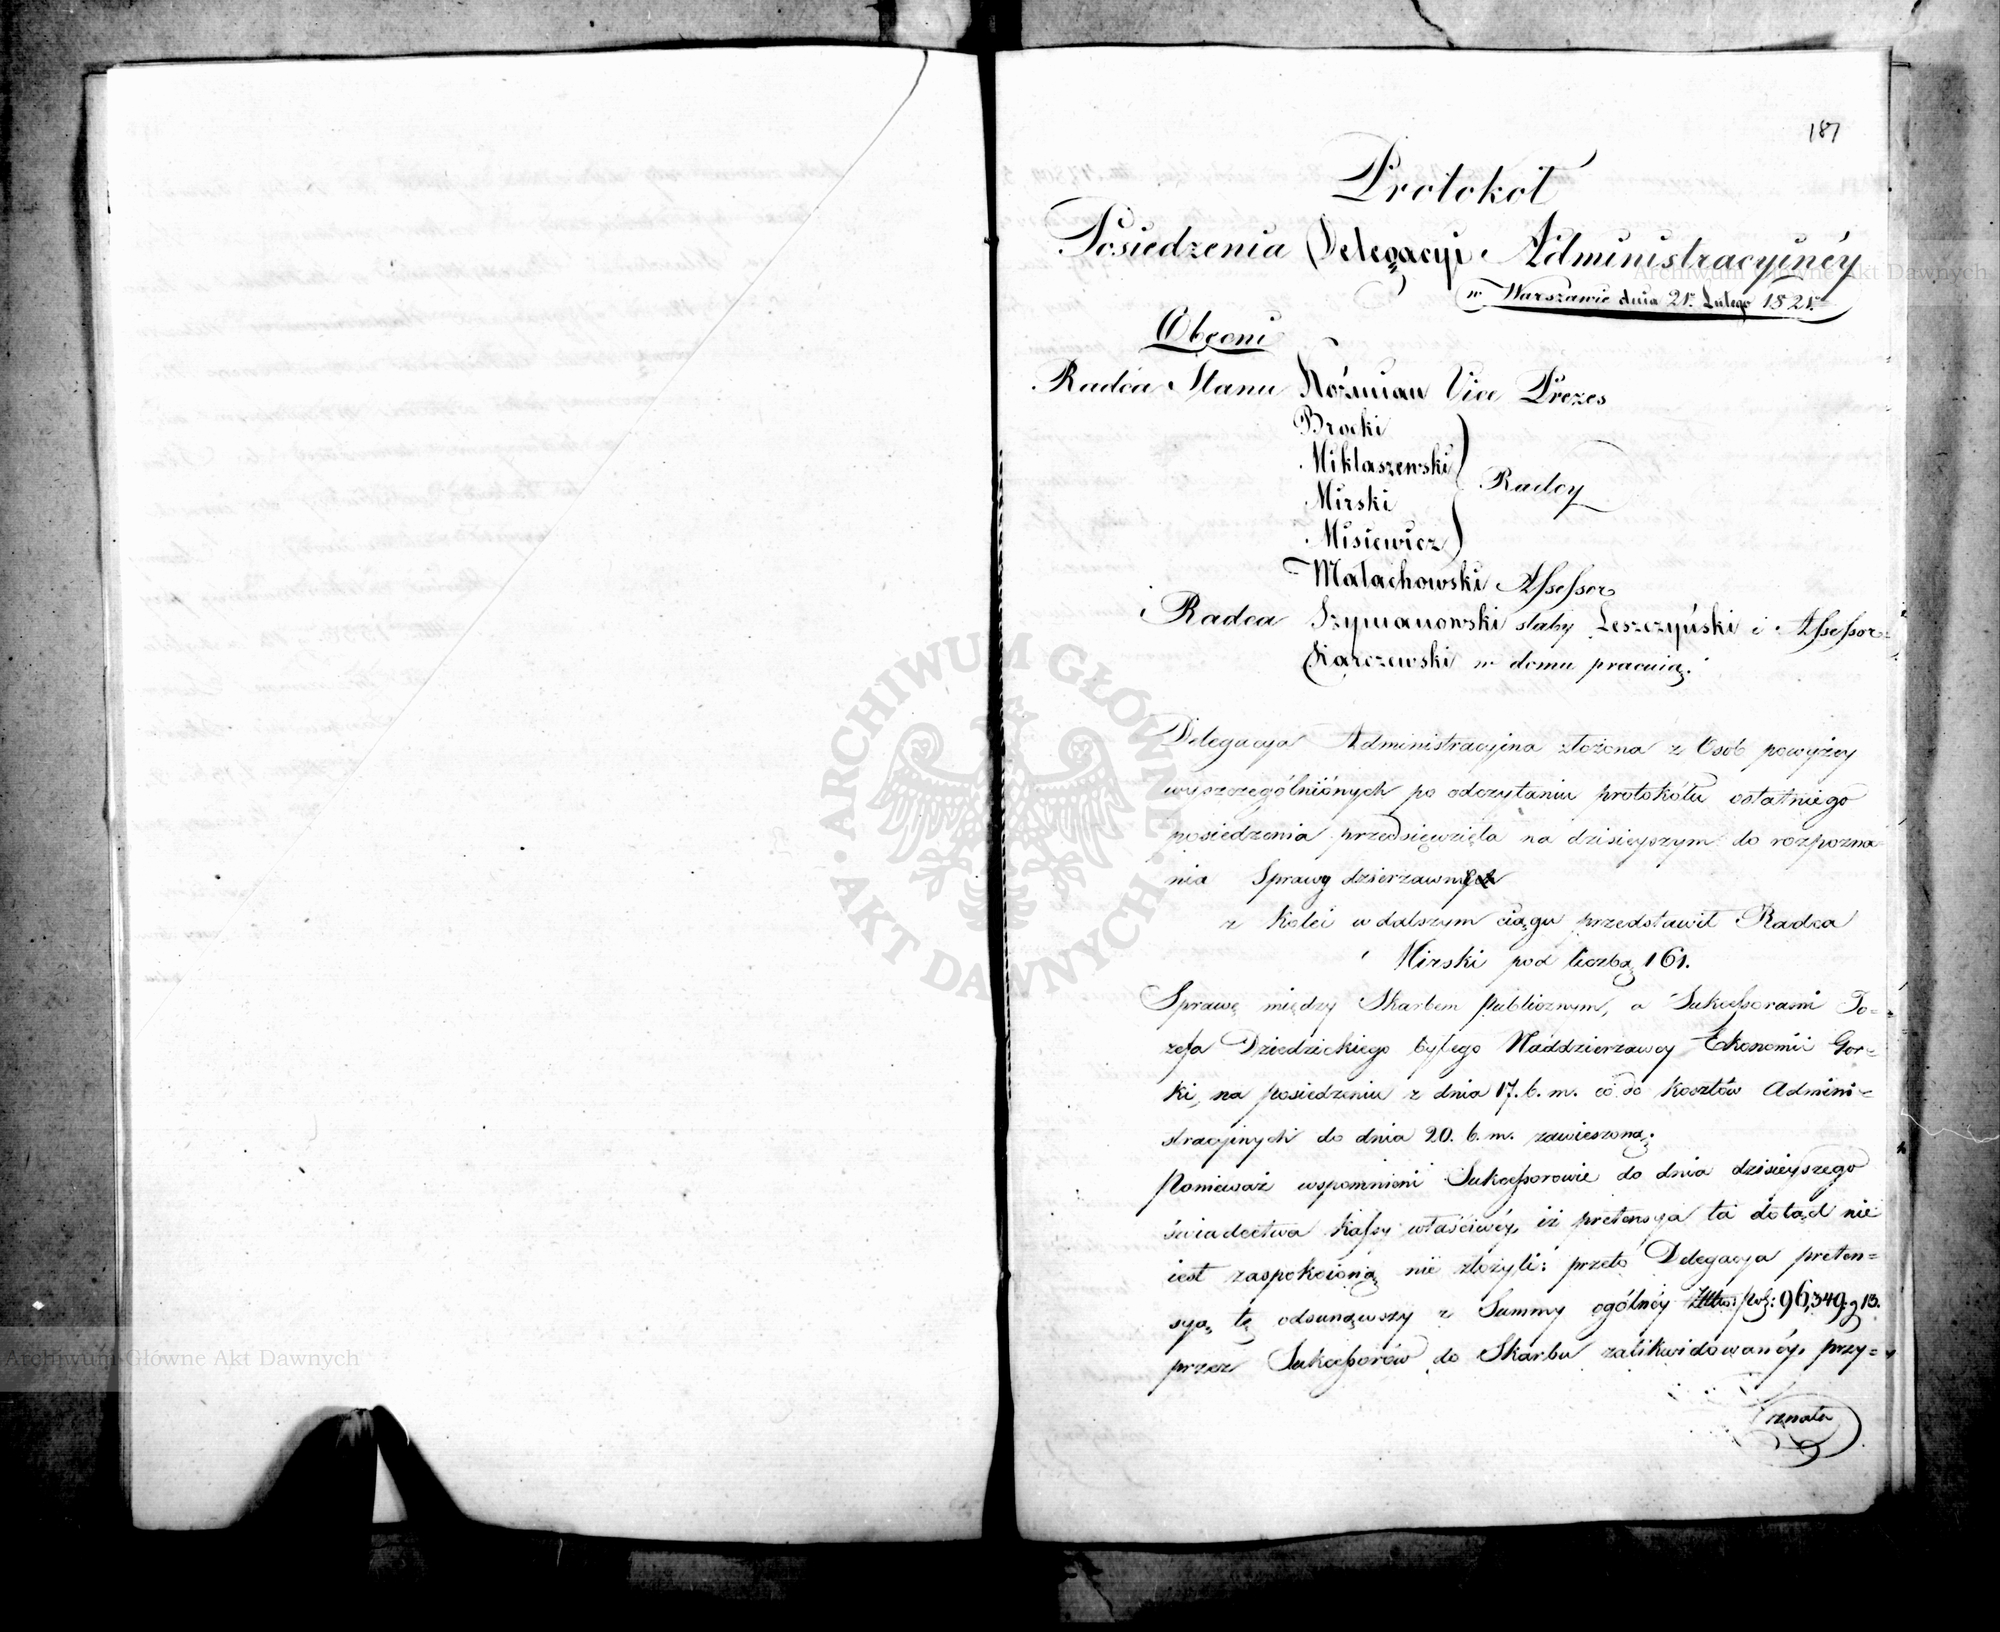 187
Protokół
Posiedzenia Delegacyi Administracyinéy
w Warszawie dnia 21. Lutego 1821.
Obecni
Radca Stanu Koźmian Vice Prezes
Brocki
Miklaszewski
Mirski
Radcy
Misiewicz
Małachowski Assessor
i Radca Szymanowski słaby Leszczyński i Assessor
Karczewski w domu pracuią.
Delegacya Administracyina złożona z Osób powyżey
wyszczególniónych po odczytaniu protokółu ostatniego
posiedzenia przedsięwzięła na dzisieyszym do rozpozna
nia Sprawy dzierzawne
z kolei w dalszym ciągu przedstawił Radca
Mirski pod liczbą 161.
Sprawę między Skarbem Publicznym, a Sukcessorami Jo=
zefa Dziedzickiego byłego Naddzierzawcy Ekonomii Gor=
ki, na posiedzeniu z dnia 17. b. m. co do kosztów Admini=
stracyinych do dnia 20. b. m. zawieszoną.
Ponieważ wspomnieni Sukcessorowie do dnia dzisieyszego
świadectwa kassy właściwéy, iż pretensya ta dotąd nie
iest zaspokoioną nie złożyli: przeto Delegacya preten=
syą tę odsunąwszy z Summy ogólnéy złp: 96,349. g 13.
przez Sukcessorów do Skarbu zalikwidowanéy, przy=
znała
Archiwum Główne Akt Dawnych
Archiwum Główne Akt Dawnych
ARCHIWUM GŁÓWNE AKT DAWNYCH